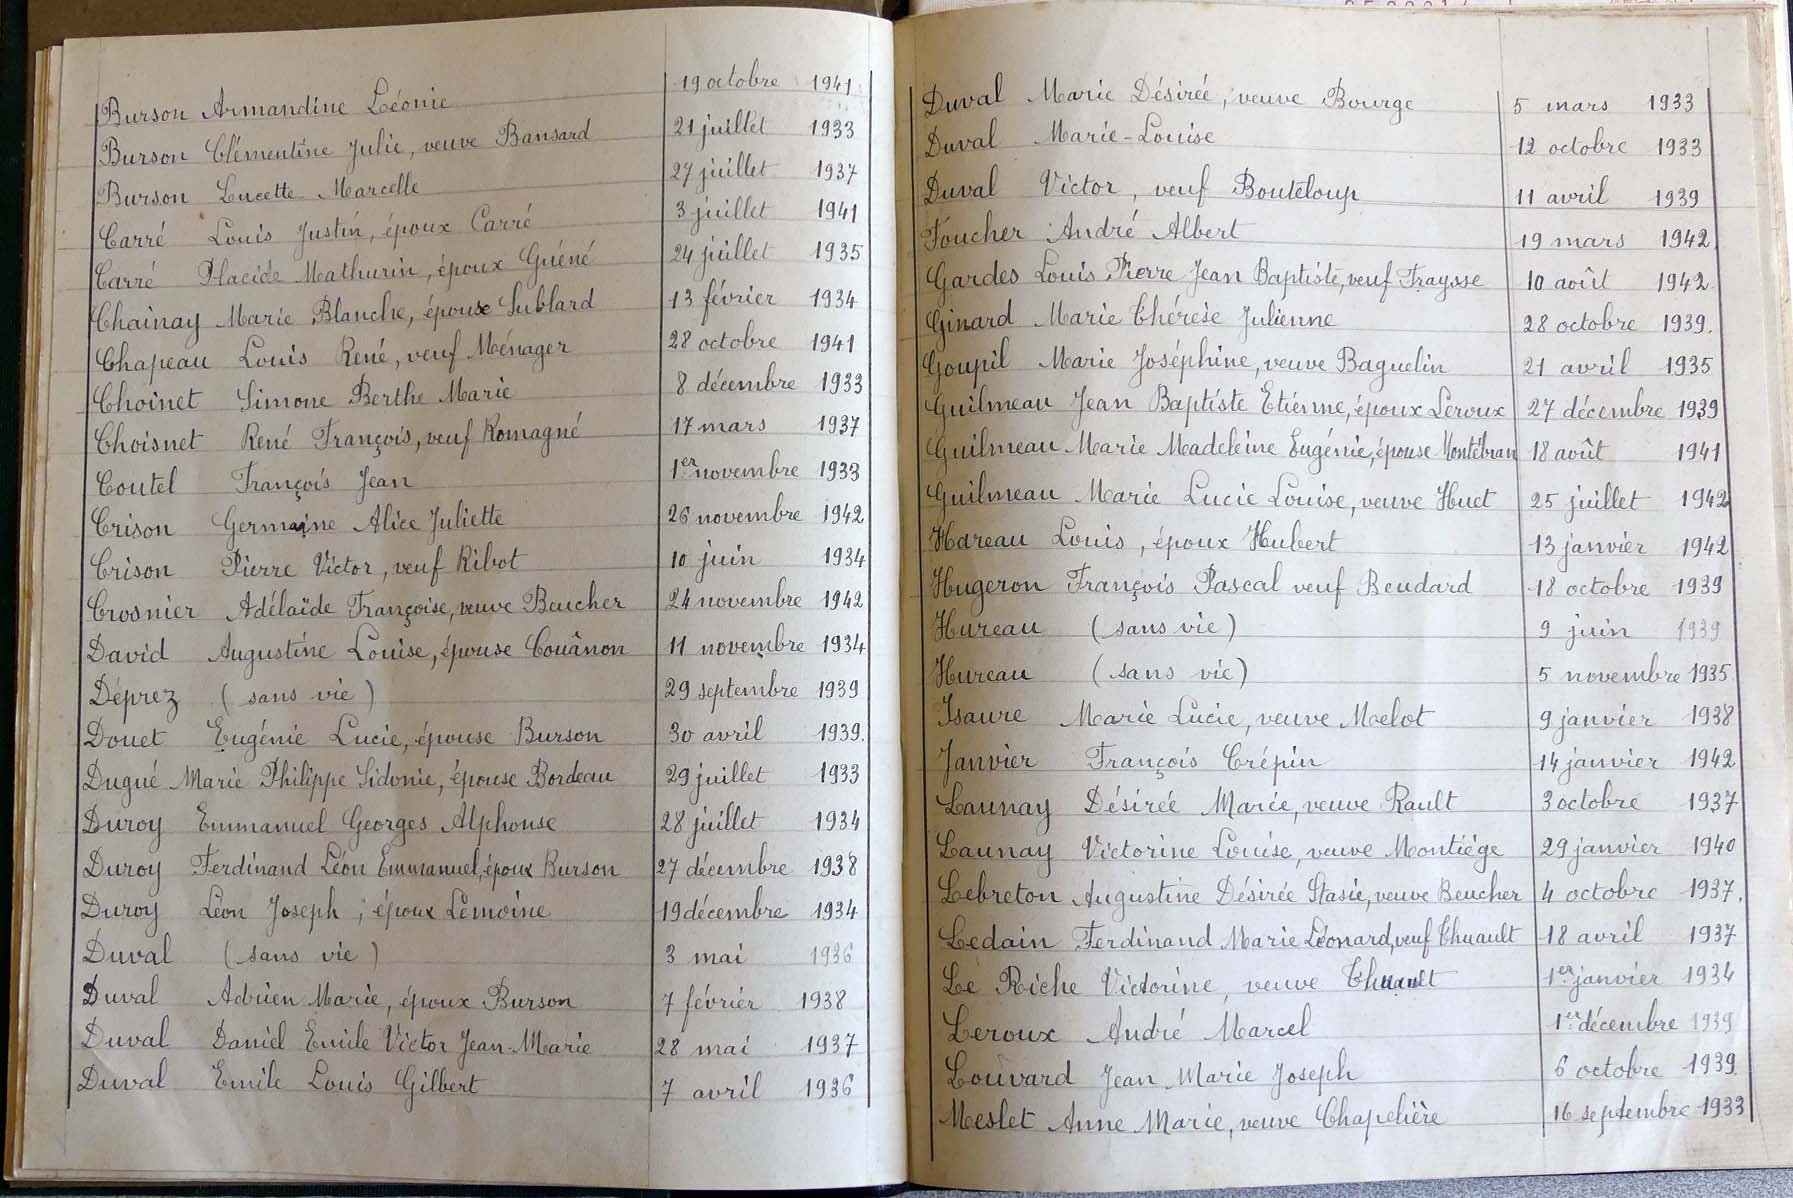 Burson Armandine Léonie 19 octobre 1941
Burson Clémentine Julie, veuve Bansard 21 juillet 1933
Burson Lucette Marcelle 27 juillet 1937
Carré Louis Justin, époux Carré 3 juillet 1941
Carré Placide Mathurin, époux Guéné 24 juillet 1935
Chainay Marie Blanche, épouse Sublard 13 février 1934
Chapeau Louis René, veuf Ménager 28 octobre 1941
Choinet Simone Berthe Marie 8 décembre 1933
Choisnet René François, veuf Romagné 17 mars 1937
Coutel François Jean 1er novembre 1933
Crison Germaine Alice Juliette 26 novembre 1942
Crison Pierre Victor, veuf Ribot 10 juin 1934
Crosnier Adélaïde Françoise, veuve Beucher 24 novembre 1942
David Augustine Louise, épouse Couânon 11 novembre 1934
Déprez (sans vie) 29 septembre 1939
Douet Eugénie Lucie, épouse Burson 30 avril 1939.
Dugué Marie Philippe Sidonie, épouse Bordeau 29 juillet 1933
Duroy Emmanuel Georges Alphonse 28 juillet 1934
Duroy Ferdinand Léon Emmanuel, époux Burson 27 décembre 1938
Duroy Léon Joseph, époux Lemoine 19 décembre 1934
Duval (sans vie) 3 mai 1936
Duval Adrien Marie, époux Burson 7 février 1938
Duval Daniel Emile Victor Jean-Marie 28 mai 1937
Duval Emile Louis Gilbert 7 avril 1936
Duval Marie Désirée, veuve Bourge 5 mars 1933
Duval Marie-Louise 12 octobre 1933
Duval Victor, veuf Bouteloup 11 avril 1939
Foucher André Albert 19 mars 1942
Gardes Louis Pierre Jean Baptiste, veuf Fraysse 10 août 1942
Ginard Marie Thérèse Julienne 28 octobre 1939.
Goupil Marie Joséphine, veuve Baguelin 21 avril 1935
Guilmeau Jean Baptiste Etienne, époux Leroux 27 décembre 1939
Guilmeau Marie Madeleine Eugénie, épouse Montébran 18 août 1941
Guilmeau Marie Lucie Louise, veuve Huet 25 juillet 1942
Hareau Louis, époux Hubert 13 janvier 1942
Hugeron François Pascal veuf Beudard 18 octobre 1939
Hureau (sans vie) 9 juin 1939
Hureau (sans vie) 5 novembre 1935
Isaure Marie Lucie, veuve Melot 9 janvier 1938
Janvier François Crépin 14 janvier 1942
Launay Désirée Marie, veuve Rault 3 octobre 1937
Launay Victorine Louise, veuve Montiége 29 janvier 1940
Lebreton Augustine Désirée Stasie, veuve Beucher 4 octobre 1937.
Ledain Ferdinand Marie Léonard, veuf Thuault 18 avril 1937
Le Riche Victorine, veuve Thuault 1er janvier 1934
Leroux André Marcel 1er décembre 1939
Louvard Jean Marie Joseph 6 octobre 1939.
Meslet Anne Marie, veuve Chapelière 16 septembre 1933